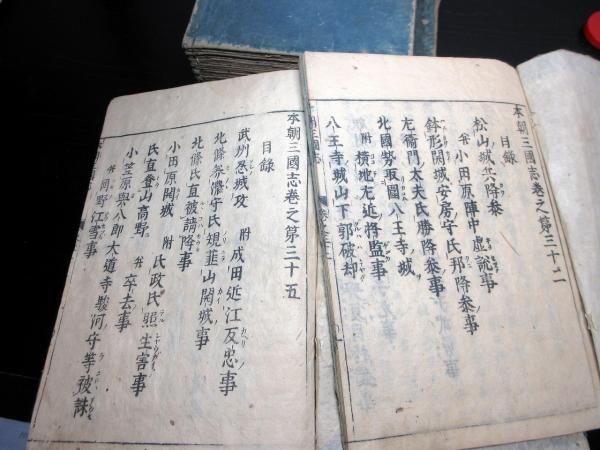 本朝三國志巻之第三十二
目録
松山ノ城兵降参
并小田原陣中虚説事
鉢形開城安房守氏邦降参ノ事
左衛門太夫氏勝降参事
北國勢取圍八王寺城ヲ
附横地左近将監事
八王寺城山下郭破却
本朝三國志巻之第三十五
目録
武州忍城攻 附成田近江反忠事
北條美濃守氏規韮山開城事
北條氏直被請降事
小田原開城 附氏政氏照生害事
氏直登山高野 并卒去事
小笠原與八郎大道寺駿河守等被誅
并岡野江雪事